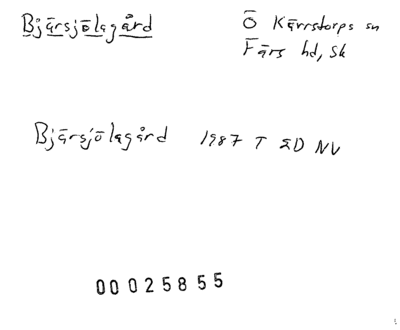 Bjärsjölagård
Ö Kärrstorps sn
Färs hd, Sk
Bjärsjölagård 1987 T ÆD NV
00025855